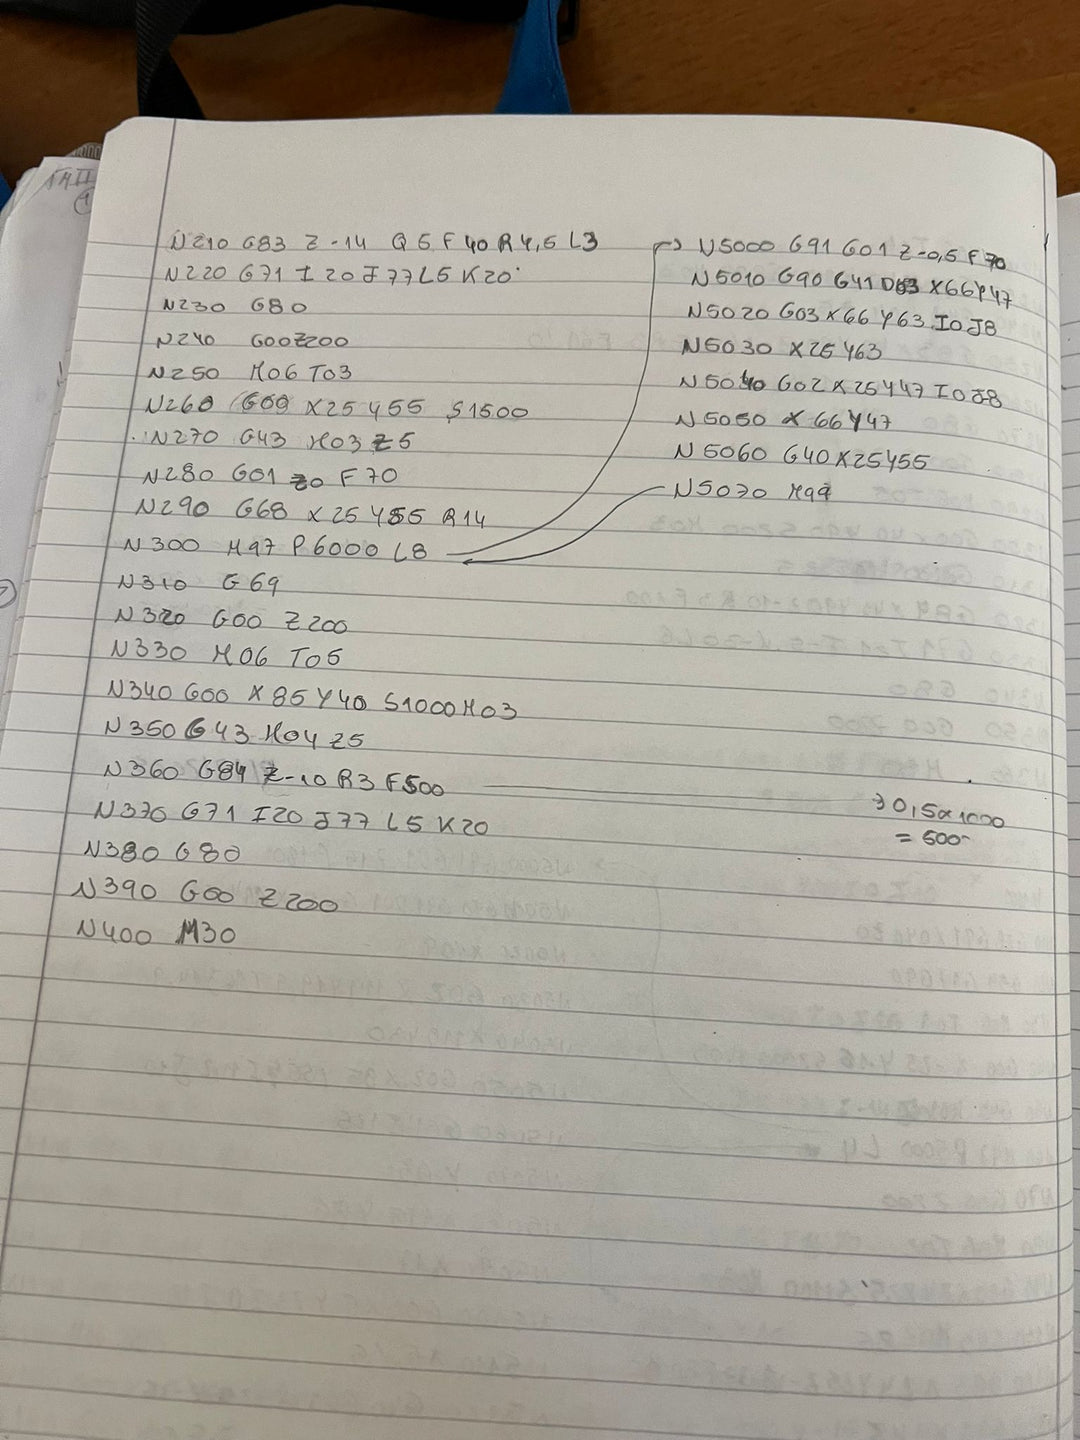 N210 G83 Z-14 Q5 F40 R4,5 L3
N220 G71 I20 J77 L5 K20
N230 G80
N240 G00 Z200
N250 M06 T03
N260 G00 X25 Y55 S1500
N270 G43 H03 Z5
N280 G01 Z0 F70
N290 G68 X25 Y55 R14
N300 M97 P6000 L8
N310 G69
N320 G00 Z200
N330 M06 T05
N340 G00 X85 Y40 S1000 M03
N350 G43 H04 Z5
N360 G84 Z-10 R3 F500
→ 0,5 x 1000
= 500
N370 G71 I20 J77 L5 K20
N380 G80
N390 G00 Z200
N400 M30
→ N5000 G91 G01 Z-0,5 F70
N5010 G90 G41 D03 X66 Y47
N5020 G03 X66 Y63 I0 J8
N5030 X25 Y63
N5040 G02 X25 Y47 I0 J8
N5050 X66 Y47
N5060 G40 X25 Y55
N5070 M99